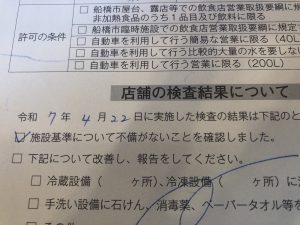 許可の条件
□ 船橋市屋台、露店等での飲食店営業取扱要綱に規定
非加熱食品のうち1品目及び飲料に限る
□ 船橋市臨時施設での飲食店営業取扱要綱に規定す
□ 自動車を利用して行う簡易な営業に限る（40L
□ 自動車を利用して行う比較的大量の水を要しない
□ 自動車を利用して行う営業に限る（200L）
店舗の検査結果について
令和 7 年 4 月 22 日に実施した検査の結果は下記のと
☑ 施設基準について不備がないことを確認しました。
□ 下記について改善し、報告をしてください。
□ 冷蔵設備（ ヶ所）、冷凍設備（ ヶ所）に
□ 手洗い設備に石けん、消毒薬、ペーパータオル等を